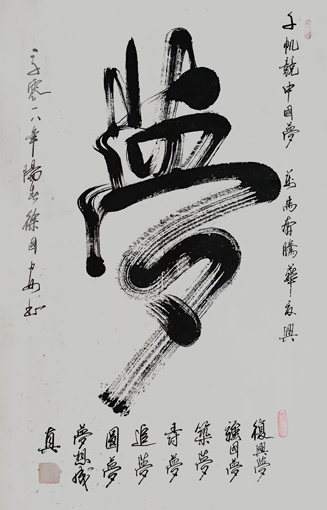 千帆競中国夢 萬馬奔騰華夏興
夢
復興夢
強国夢
築夢
尋夢
追夢
圓夢
夢想成
真
零一八年陽春徐国书